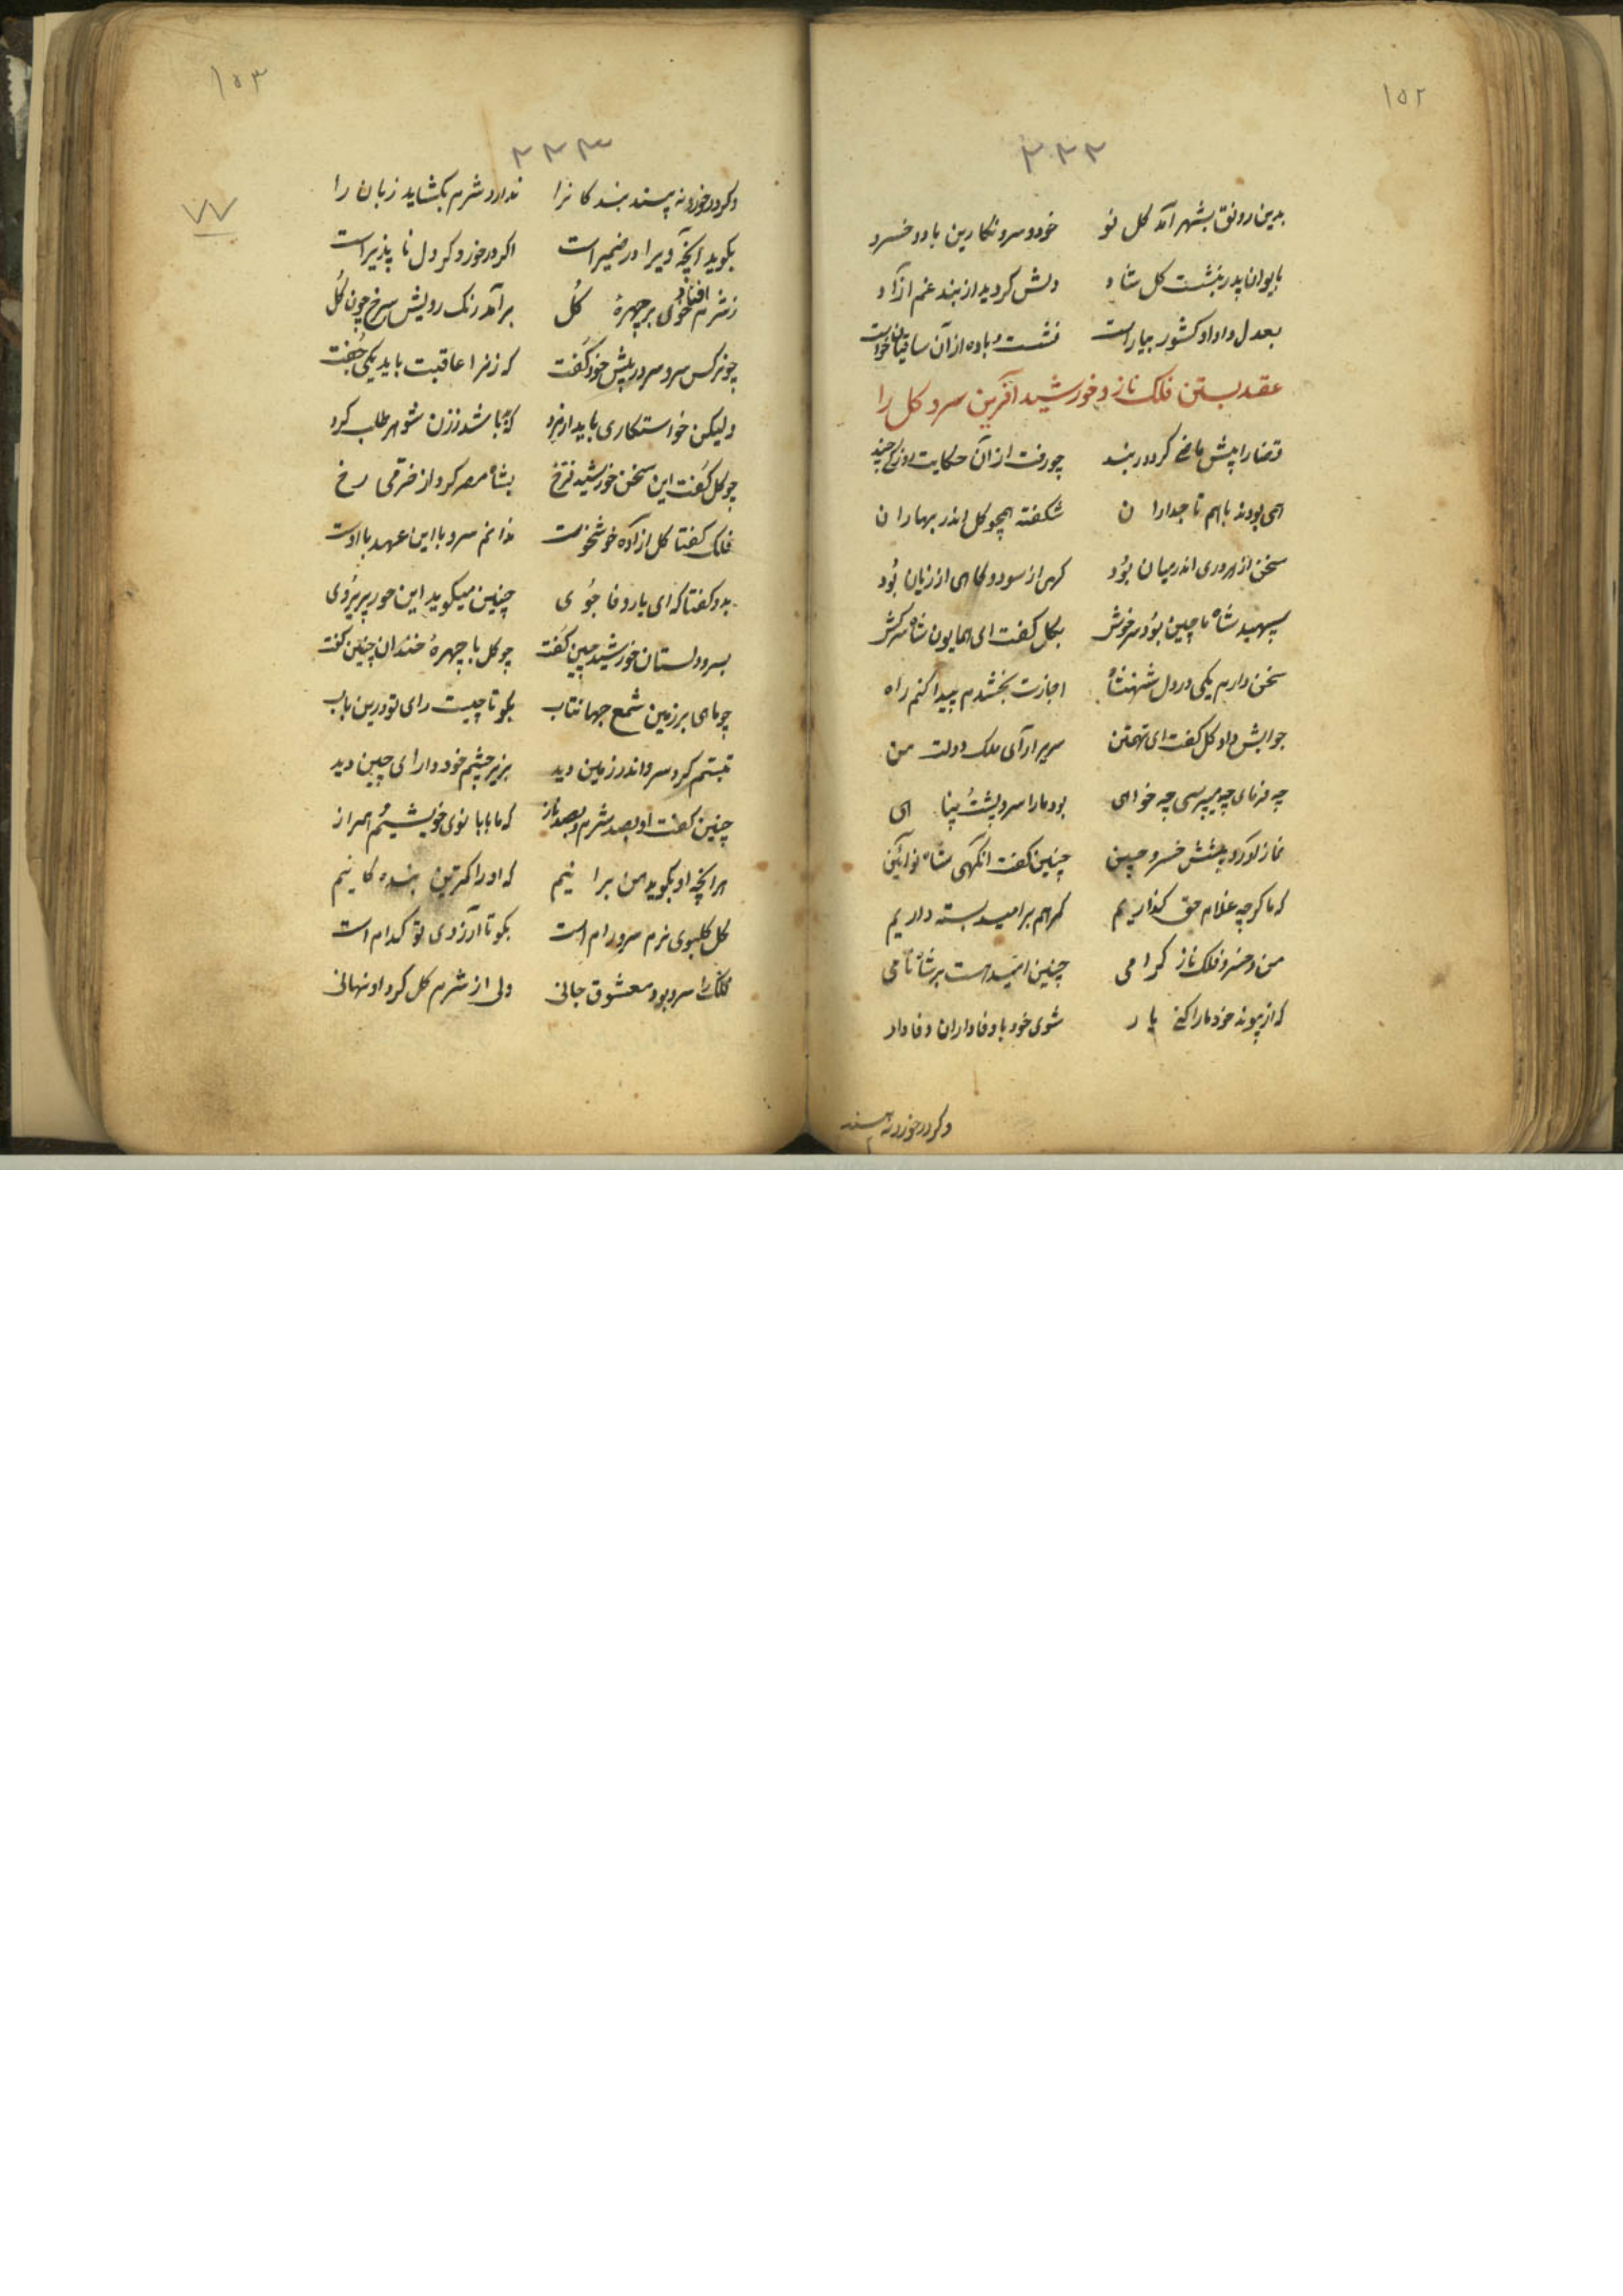 ۱۵۲
۲۲۲
بدین رونق بشهر آمد کل نو خود و سرو نکارین با دو خسرو
بایوان پدر بنشست کل شاه دلش کردید از بند غم ازاد
بعدل و داد او کشور بیاراست نشست و باده از آن ساقیان خواست
عقد بستن فلک ناز و خورشید آفرین سرو کل را
قضا را پیش ما کرد در بند چو رفت از آن حکایت روزکی چند
همی بودند باهم تاجداران شکفته همچو کل اندر بهاران
سخن از هر دری اندر میان بود کهی از سود و کاهی از زیان بود
سپهبد شاه ماچین بود سرخوش بکل کفت ای همایون شاه سرکش
سخن دارم یکی در دل شهنشاه اجازت بخشدم پیدا کنم راه
جوابش داد کل کفت ای تهمتن سریر ارآی ملک دولت من
چه فرمای چه میپرسی چه خواهی بود ما را سر و پشت پناهی
نماز آورد پیشش خسرو چین چنین کفت انکهی شاه نوآئین
که ما کرچه غلام حق کذاریم کمر هم بر امید بسته داریم
من و خسرو فلک ناز کرامی چنین امید هست بر شاه نامی
که از پیوند خود ما را کنی یار شوی خود با وفاداران وفادار
وکر در خورد نه پسند
۱۵۳
۲۲۳
۷۷
وکر در خورد نه پسند بندکانرا ندارد شرم بکشاید زبان را
بکوید آنچه ویرا در ضمیر است اکر در خورد کر دل نا پذیر است
ز شرم افتاد خوی بر چهرهٔ کل برآمد رنک رویش سرخ چون کل
چو نرکس سرو سر در پیش خود کفت که زنرا عاقبت باید یکی جفت
ولیکن خواستکاری باید از مرد که باشد ز زن شوهر طلب کرد
چو کل کفت این سخن خورشید فرخ بشاه مصر کرد از خرمی رخ
فلک کفتا کل ازاده خوشخوست ندانم سرو با این عهد با اوست
بدو کفتا که ای یار وفا جوی چنین میکوید این حور پریروی
بسرو دلستان خورشید چین کفت چو کل با چهرهٔ خندان چنین کفت
چو ماهی بر زمین شمع جهانتاب بکو تا چیست رای تو درین باب
تبسم کرد سرو اندر زمین دید بزیر چشم خود دارای چین دید
چنین کفت او بصد شرم و بصد ناز که ما با بانوی خویشیم همراز
هر انچه او بکوید من برانیم که او را کمترین بنده کانیم
کل کلبوی نرم سرو رام است بکو تا آرزوی تو کدام است
فلک را سرو بود معشوق جانی ولی از شرم کل کرد او نهانی